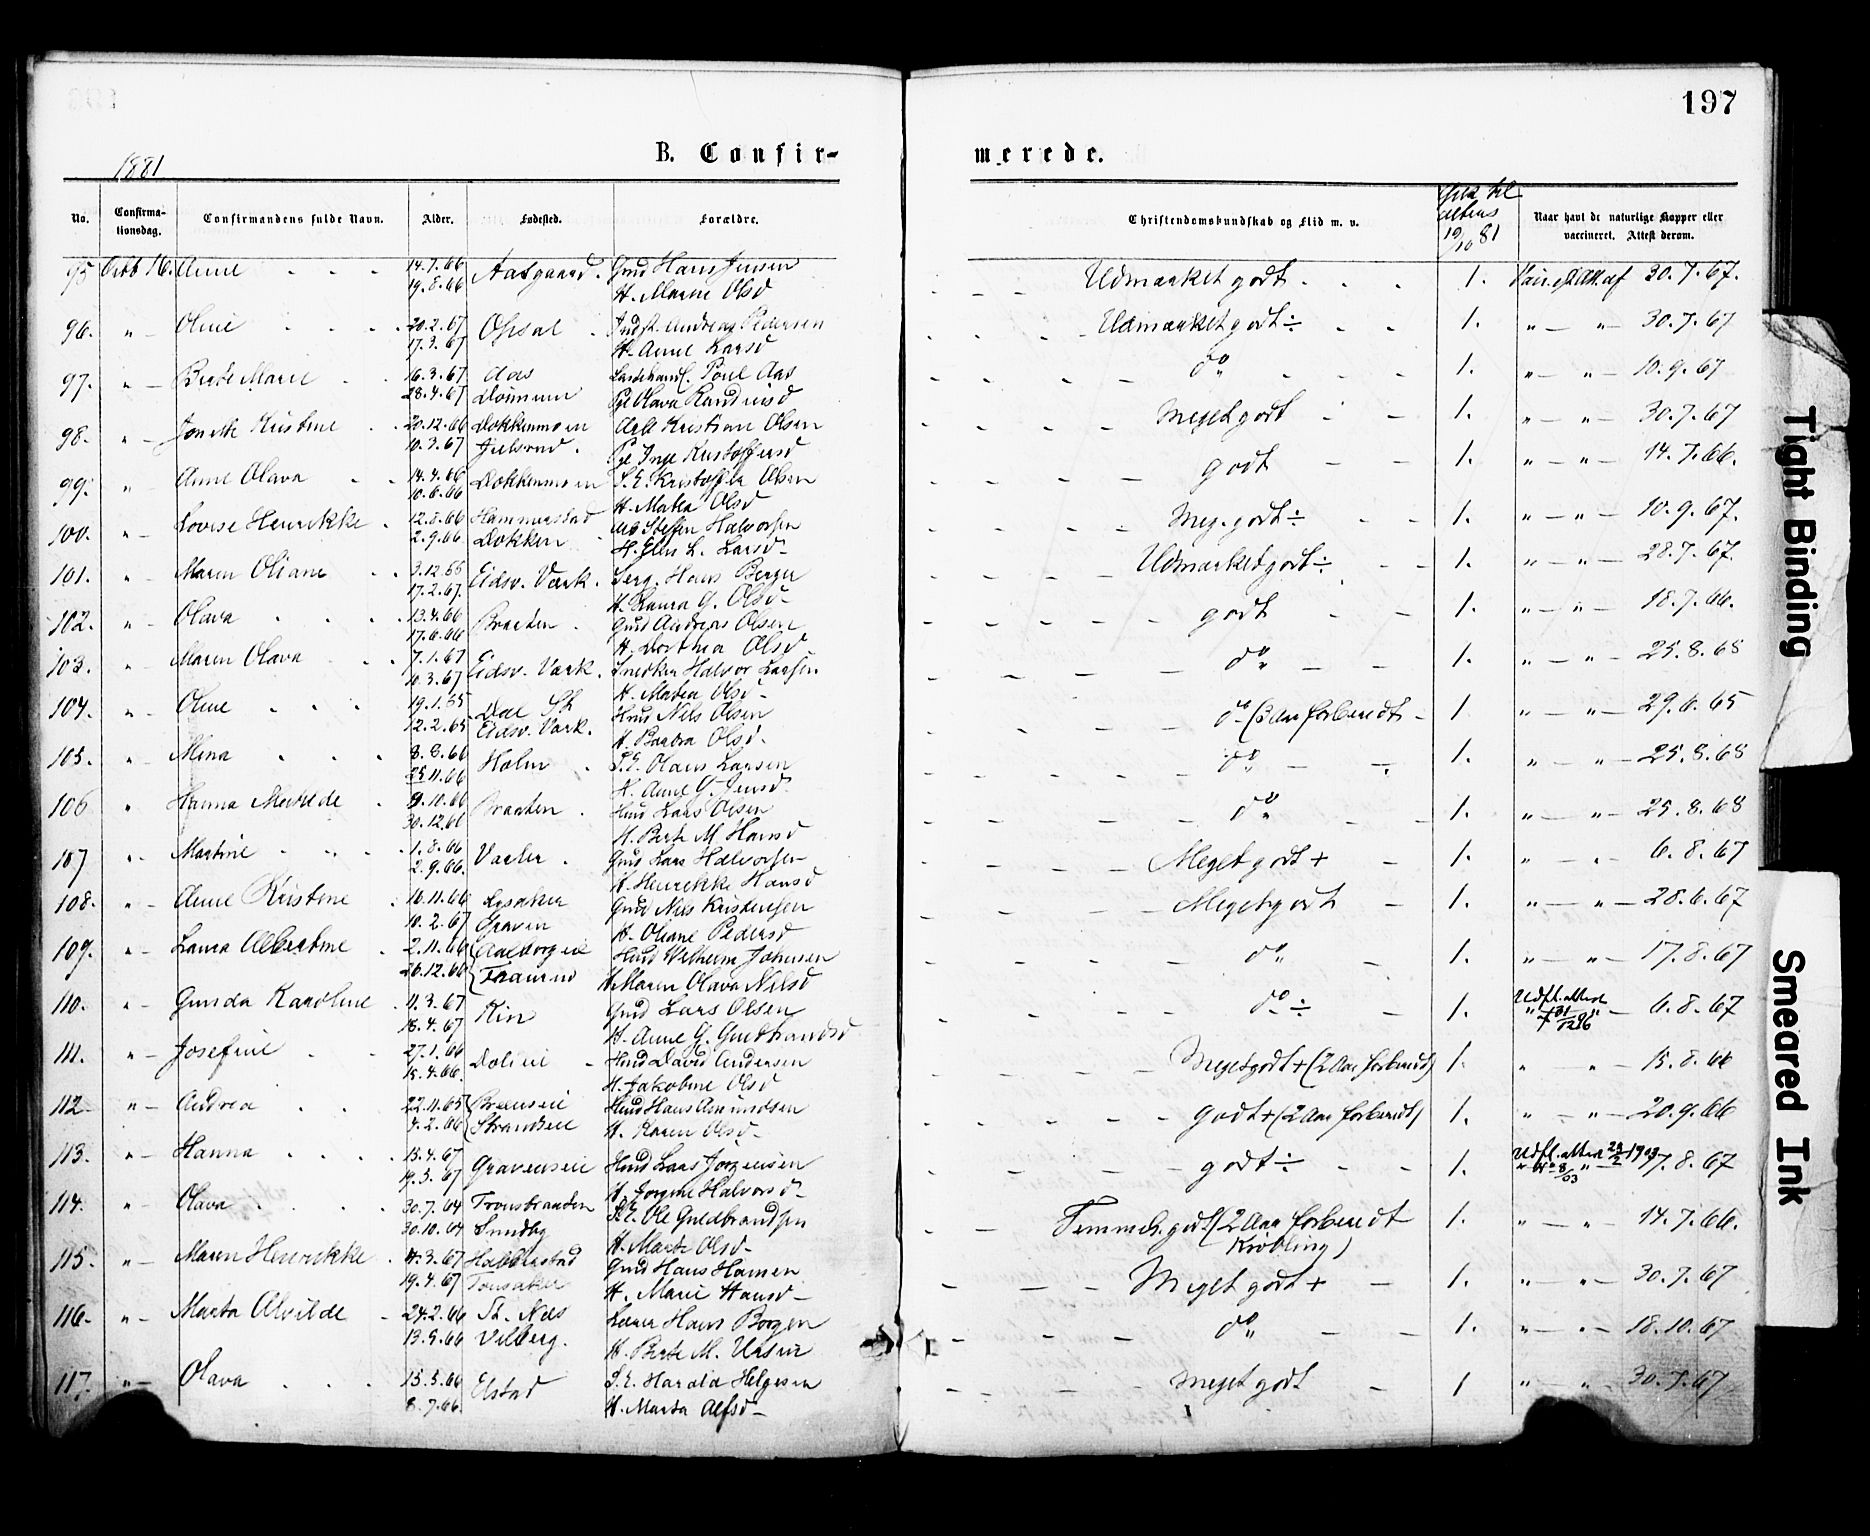 197
1881
B. Confirmerede.
No. Confirmationsdag. Confirmandens fulde Navn. Alder. Fødested. Forældre. Christendomskundskab og Flid m. v. 19/10 81 Naar havt de naturlige Kopper eller vaccineret. Attest derom.
95 Octb 16. Anne 14.7.66 Aasgaard. Gmd Hans Jensen Udmærket godt 1. 30.7.67.
19.8.66 H. Maren Olsd
96. " Oline 20.2.67 Opsal Andreas Pedersen Udmærket godt ÷ 1. " " 30.7.67
17.3.67 H. Anne Larsd
97. " Berte Marie 16.3.67 Aas Poul Aas do 1. " " 10.9.67
28.4.67 Pge Olava
98. " Kristine 20.12.66 Dokkenmoen Kristian Olsen Meget godt 1. " " 30.7.67
10.3.67 Pge Inge Kristoffersd
99. " Anne Olava 14.4.66 Dokkenmoen S.E. Kristoffer Olsen godt 1. " " 14.7.66.
10.6.66 H. Mathea Olsd
100. " Lovise Henrikke 12.8.66 Hammerstad Steffen Halvorsen Meg. godt ÷ 1. " " 10.9.67.
2.9.66 Dokken H. Elen L. Larsd
101. " Maren Oliane 9.12.66 Eidsv. Værk. Serg. Hans Berger Udmærket godt ÷ 1. " " 28.7.67.
17.2.67. H. Laura G. Olsd
102. " Olava 13.4.66 Braaten Gmd Andreas Olsen godt 1. " " 18.7.66.
17.6.66 H. Dorthea Olsd
103. " Maren Olava 7.1.67 Eidsv. Værk. Snedker Halvor Larsen do 1. " " 25.8.68
10.3.67 H. Mathea Olsd
104. " Oline 19.1.65 Dal Hmd Nils Olsen do (3 Aar forberedt 1. " " 29.6.65
12.2.65 Eidsv. Værk. H. Barbra Olsd.
105. " Mina 8.8.66 Holm S.E. Olaus Larsen do 1. " " 25.8.68
25.11.66 H. Anne G. Jensd.
106 " Hanna Matilde 9.10.66 Braaten Hmd Lars Olsen do 1. " " 25.8.68
30.12.66 H. Berte M. Hansd
107 " Martine 1.8.66 Gmd Lars Halvorsen Meget godt + 1. " " 6.8.67
2.9.66. H. Henrikke Hansd
108. " Anne Kristine 16.11.66 Lysaker Gmd Nils Kristensen Meget godt 1. " " 28.6.67
10.2.67 Graven H. Oliane Pedersd
109. " Laura Albertine 2.11.66 Hmd Wilhelm Johnsen do 1. " " 17.8.67
26.12.66 H. Maren Olava Nilsd
110. " Gunda Karoline 11.3.67 Kin Gmd Lars Olsen do ÷ 1. Udfl. attest " 6.8.67
18.4.67 H. Anne G. Gudbrandsd
111. " Josefine 27.1.66 Hmd David Andersen Meget godt + (2 Aar forberedt) 1. " " 15.8.66
15.4.66. H. Jakobine Olsd
112 " Andrea 22.11.65 Hmd Hans Amundsen Godt + (2 Aar forberedt) 1. " " 20.9.66
4.2.66 H. Karen Olsd
113. " Hanna 15.4.67 Graverseie Hmd Lars Jørgensen godt ÷ 1. Udfl. attest 1903 17.8.67
19.5.67 H. Jørgine Halvorsd
114. " Olava 30.7.64 Tronsbraaten S.E. Ole Guldbrandsen Temmel. godt (2 Aar forberedt 1. " " 14.7.66.
30.10.64 Sundby H. Marte Olsd Krøbling)
115. " Maren Henrikke 4.3.67 Habberstad Gmd Hans Hansen Meget godt + 1. " " 30.7.67
19.4.67 Tonsaker H. Marie Hansd
116. " Marta Alvilde 24.2.66 St. Næs Lærer Hans Borgen do 1. " " 18.10.67
13.5.66 Vilberg. H. Berte M.
117. " Olava 15.5.66 Elstad S.E. Harald Helgesen Meget godt 1 " " 30.7.67
8.7.66 H. Marta Alfsd
Tight Binding
Smeared Ink